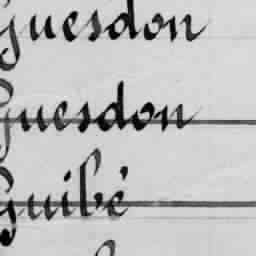 Guesdon
Guesdon
Guibé